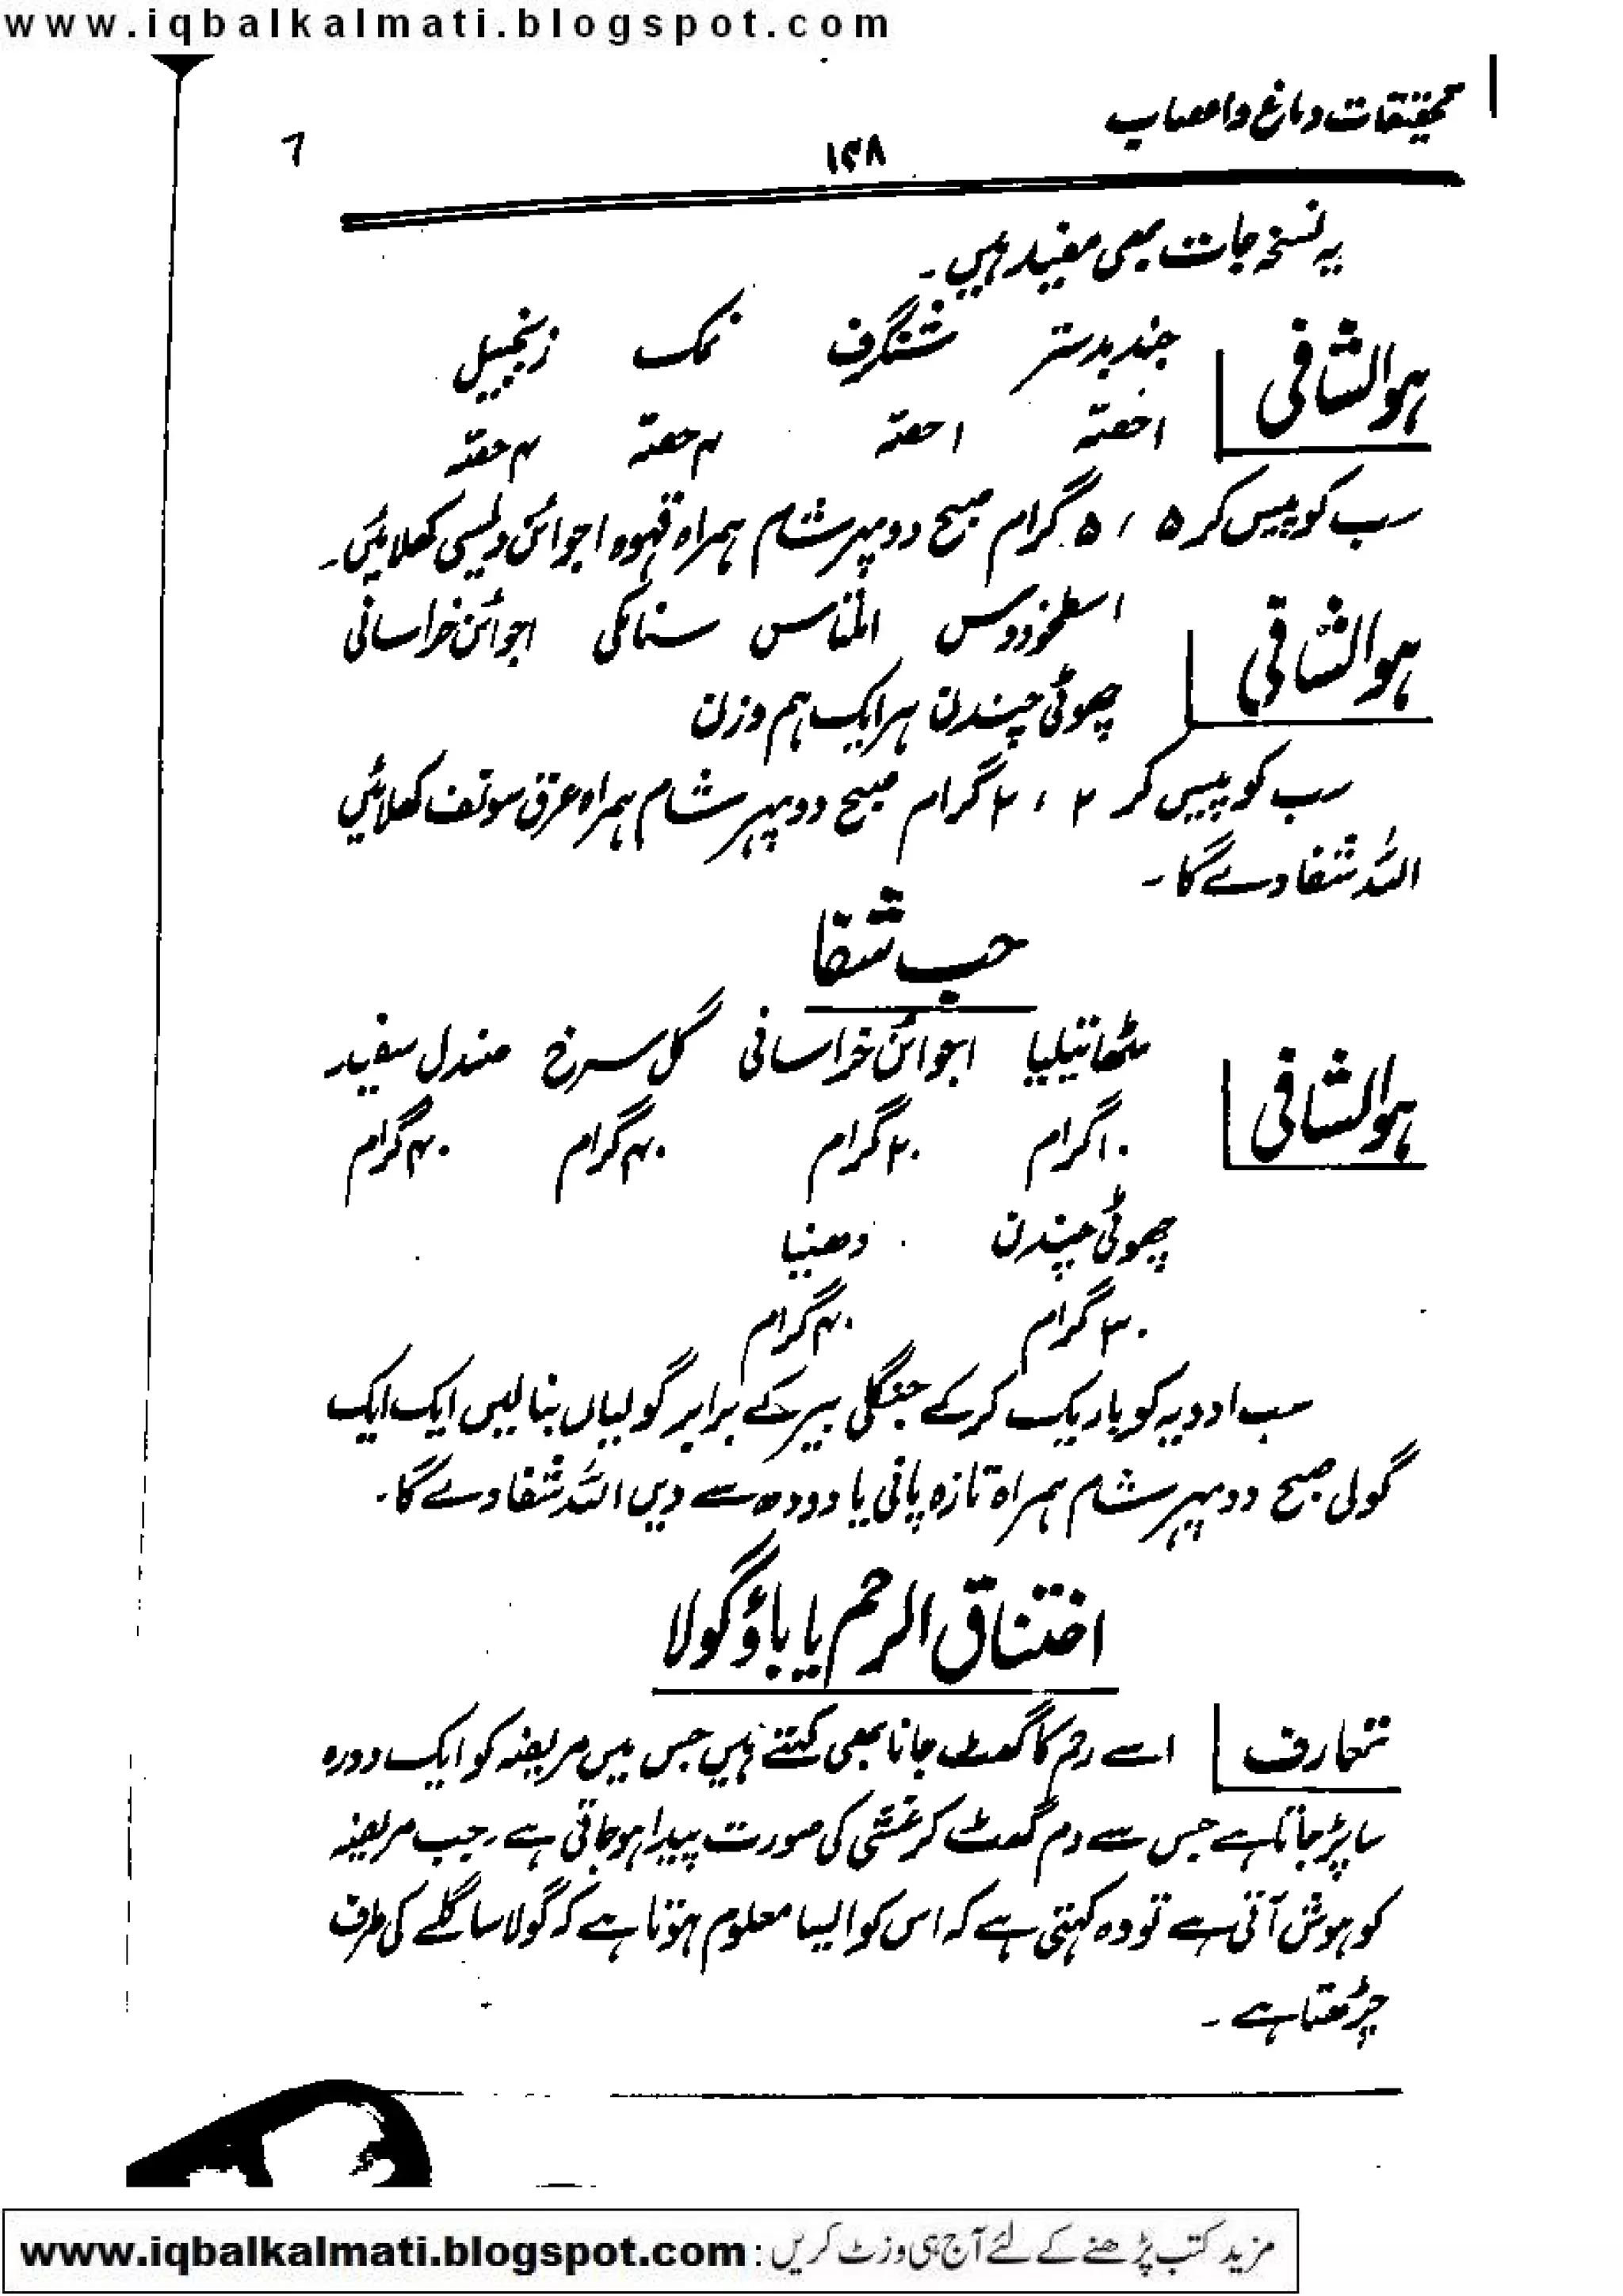 www.iqbalkalmati.blogspot.com
تحقیقات دماغ و اعصاب
۱۴۸
یہ نسخہ جات بھی مفید ہیں۔
ہوالشافی
جندبدستر شنگرف نمک زنجبیل
۱حصّہ ۱حصّہ ۴حصّہ ۴حصّہ
سب کو پیس کر ۵ ، ۵ گرام صبح دوپہر شام ہمراہ قہوہ اجوائن دیسی کھلائیں۔
ہوالشافی
اسطخودوس املتاس سنامکی اجوائن خراسانی
چھوٹی چندن ہر ایک ہم وزن
سب کو پیس کر ۲ ، ۲ گرام صبح دوپہر شام ہمراہ عرق سونف کھلائیں
اللہ شفا دے گا۔
حب شفا
ہوالشافی
مٹھا تیلیا اجوائن خراسانی گل سرخ صندل سفید
۱۰گرام ۲۰گرام ۴۰گرام ۴۰گرام
چھوٹی چندن دھنیا
۳۰گرام ۴۰گرام
سب ادویہ کو باریک کرکے جنگلی بیر کے برابر گولیاں بنا لیں ایک ایک
گولی صبح دوپہر شام ہمراہ تازہ پانی یا دودھ سے دیں اللہ شفا دے گا۔
اختناق الرحم یا باؤگولا
تعارف
اسے رحم کا گھٹ جانا بھی کہتے ہیں جس میں مریضہ کو ایک دورہ
سا پڑ جاتا ہے جس سے دم گھٹ کر غشی کی صورت پیدا ہو جاتی ہے۔ جب مریضہ
کو ہوش آتی ہے تو وہ کہتی ہے کہ اس کو ایسا معلوم ہوتا ہے کہ گولا سا گلے کی طرف
چڑھتا ہے۔
مزید کتب پڑھنے کے لئے آج ہی وزٹ کریں : www.iqbalkalmati.blogspot.com